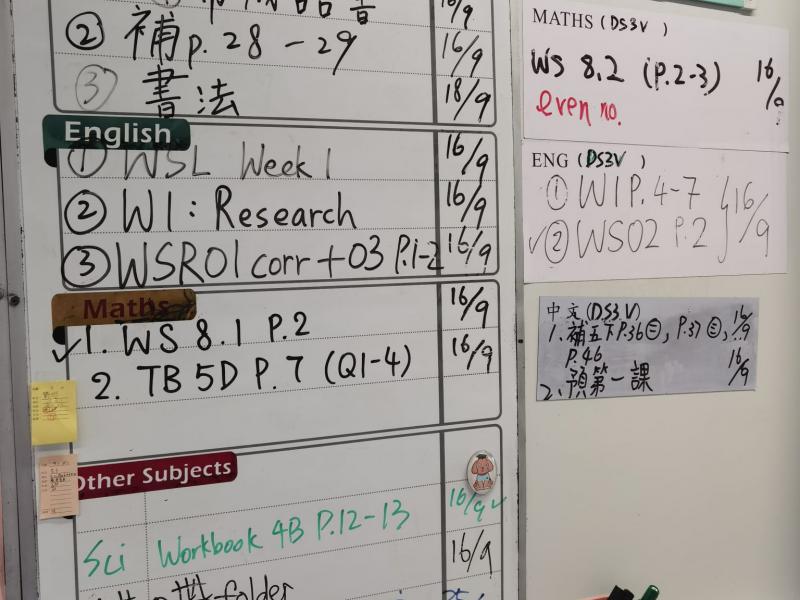 16/9
② 補p.28-29 16/9
③ 書法 18/9
English
① WSL Week 1 16/9
② W1: Research 16/9
③ WSR01 corr + 03 P.1-2 16/9
Maths
✓1. WS 8.1 P.2 16/9
2. TB 5D P.7 (Q1-4) 16/9
Other Subjects
Sci Workbook 4B P.12-13 16/9 ✓
16/9
folder
MATHS (DS3V)
WS 8.2 (P.2-3) 16/9
even no.
ENG (DS3V)
① W1 P.4-7
✓② WS02 P.2 } 16/9
中文(DS3V)
1. 補五下P.36㊂, P.37㊂, 16/9
P.46
2. 預第一課 16/9